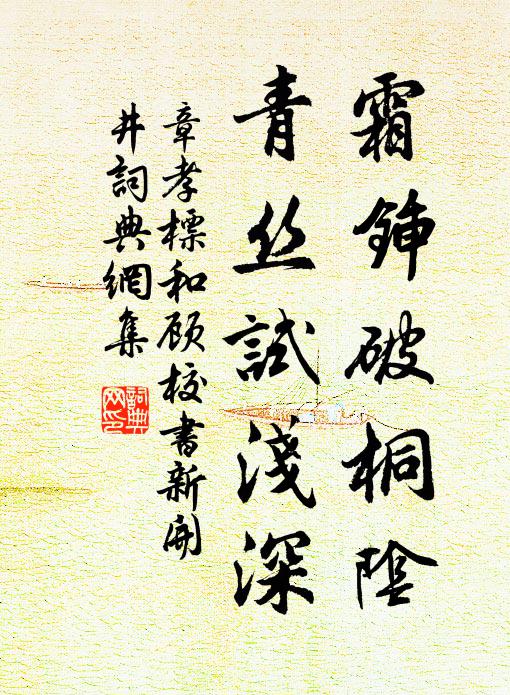 霜鍤破桐陰
青丝試淺深
章孝標和顾校書新開
井詞典網集
詞典
网印